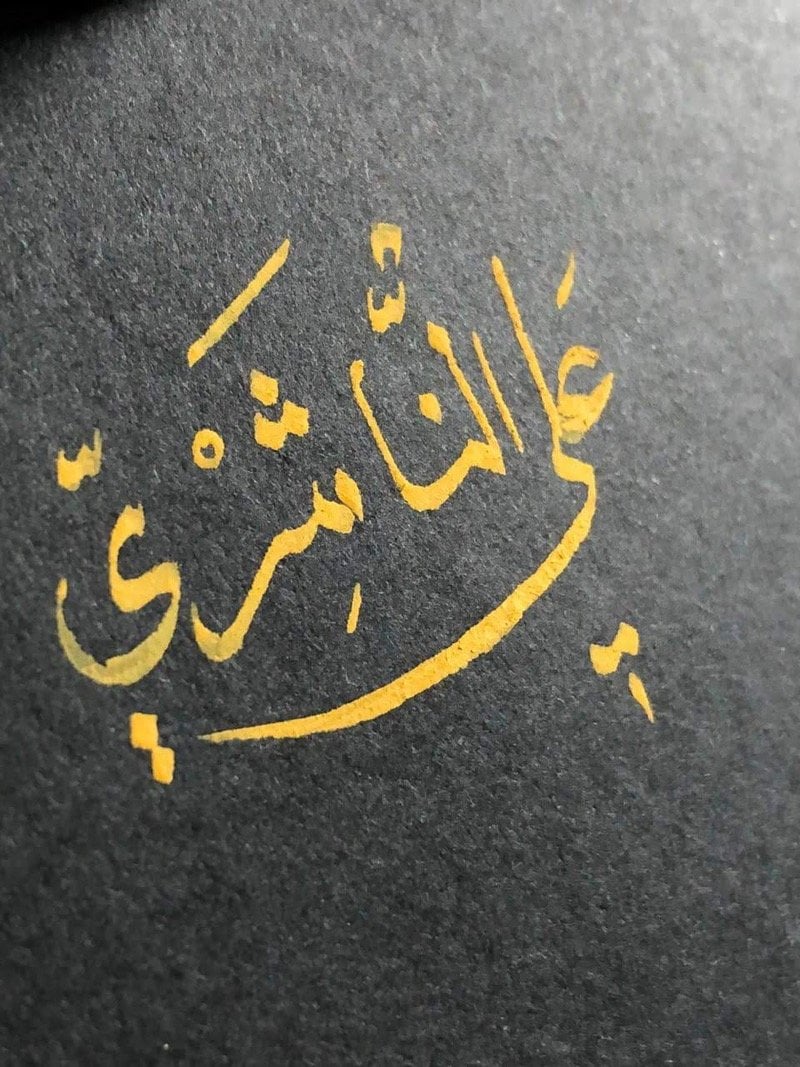 عَلِي النَّاشِرْيّ